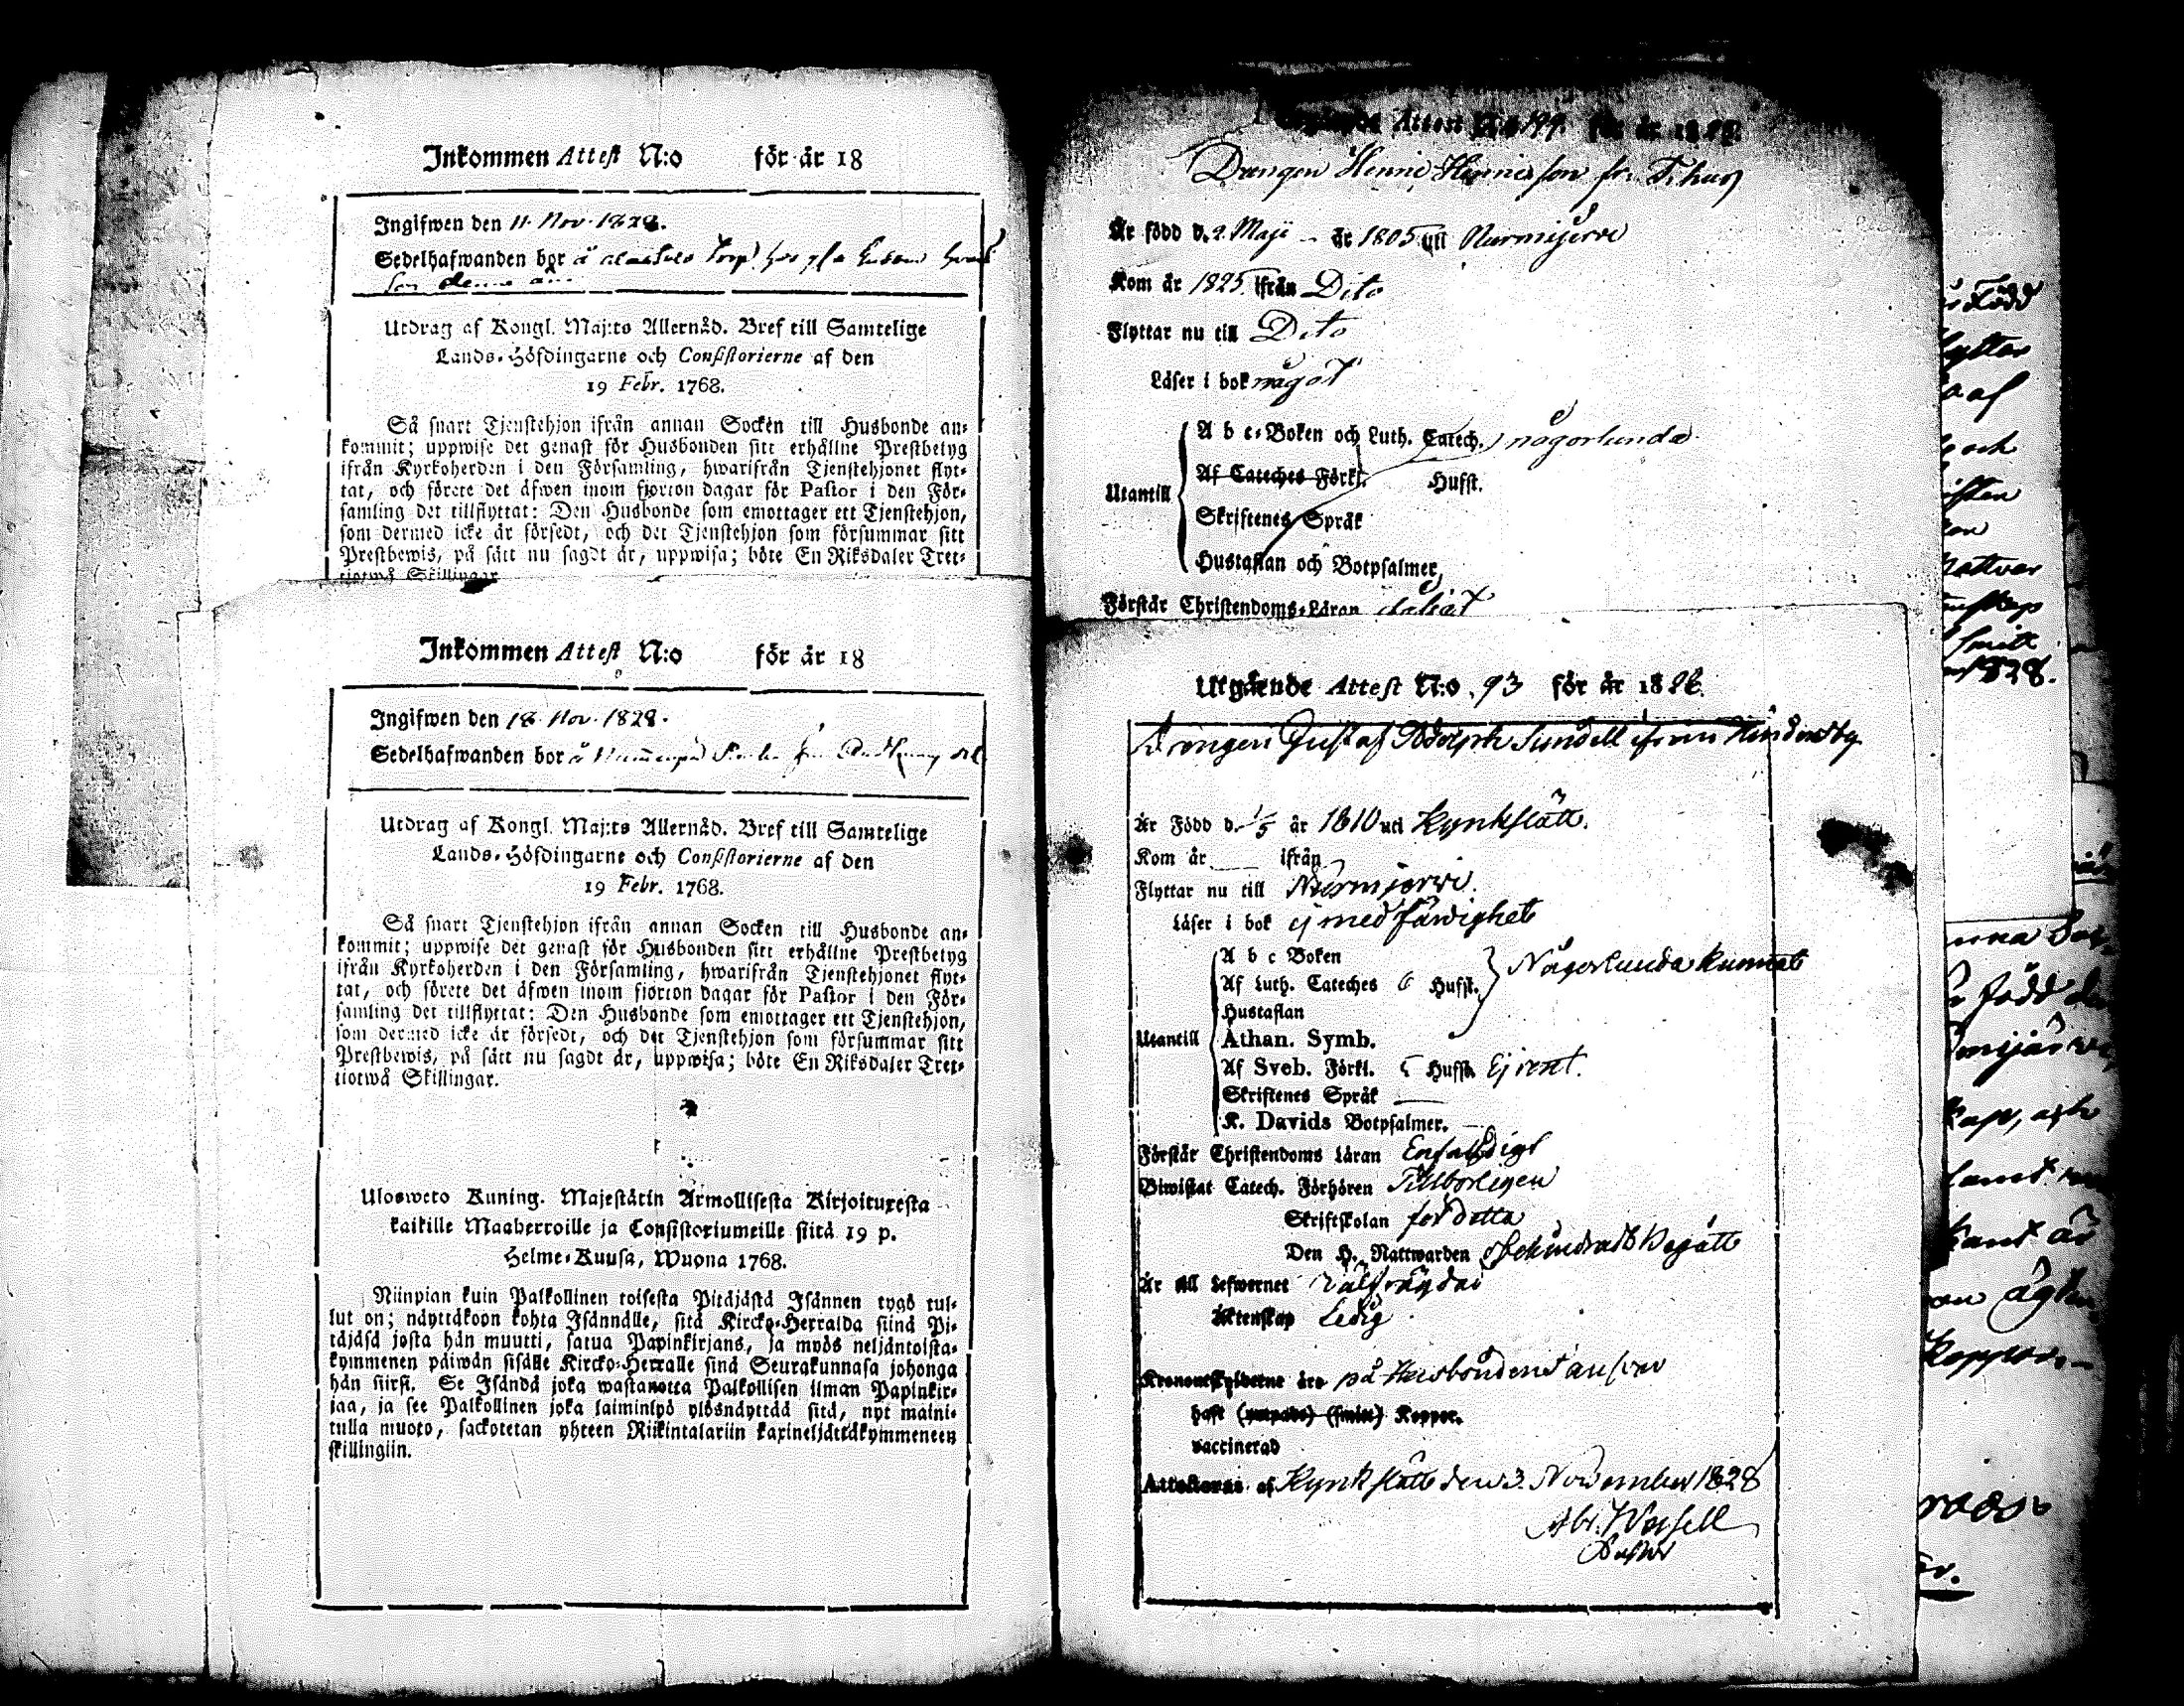 Inkommen Attest N:o för år 18
Ingifwen den 11. Nov. 1828.
Sedelhafwanden bor å
Utdrag af Kongl. Maj:ts Allernåd. Bref till Samtelige
Lands-Höfdingarne och Consistorierne af den
19 Febr. 1768.
Så snart Tjenstehjon ifrån annan Socken till Husbonde an-
kommit; uppwise det genast för Husbonden sitt erhållne Prestbetyg
ifrån Kyrkoherden i den Församling, hwarifrån Tjenstehjonet flyt-
tat, och förete det äfwen inom fjorton dagar för Pastor i den För-
samling det tillflyttat: Den Husbonde som emottager ett Tjenstehjon,
som dermed icke är försedt, och det Tjenstehjon som försummar sitt
Prestbewis, på sätt nu sagdt är, uppwisa; böte En Riksdaler Tret-
tiotwå Skillingar
Inkommen Attest N:o för år 18
Ingifwen den 18. Nov. 1828.
Sedelhafwanden bor å
Utdrag af Kongl. Maj:ts Allernåd. Bref till Samtelige
Lands-Höfdingarne och Consistorierne af den
19 Febr. 1768.
Så snart Tjenstehjon ifrån annan Socken till Husbonde an-
kommit; uppwise det genast för Husbonden sitt erhållne Prestbetyg
ifrån Kyrkoherden i den Församling, hwarifrån Tjenstehjonet flyt-
tat, och förete det äfwen inom fjorton dagar för Pastor i den För-
samling det tillflyttat: Den Husbonde som emottager ett Tjenstehjon,
som dermed icke är försedt, och det Tjenstehjon som försummar sitt
Prestbewis, på sätt nu sagdt är, uppwisa; böte En Riksdaler Tret-
tiotwå Skillingar.
Ulosweto Kuning. Majestätin Armollisesta Kirjoituxesta
kaikille Maaherroille ja Consistoriumeille siitä 19 p.
Helme-Kuusa, Wuona 1768.
Niinpian kuin Palkollinen toisesta Pitäjästä Isännen tygö tul-
lut on; näyttäköön kohta Isännälle, sitä Kircko-Herralda siinä Pi-
täjäsä josta hän muutti, saatua Papinkirjans, ja myös neljäntoista-
kymmenen päiwän sisälle Kircko-Herralle siinä Seurakunnasa johonga
hän siirsi. Se Isändä joka wastanotta Palkollisen ilman Papinkir-
jaa, ja see Palkollinen joka laiminlyö ylösnäyttää sitä, nyt maini-
tulla muoto, sackotetan yhteen Riikintalariin kaxineljättäkymmeneen
skillingiin.
Attest N:o 199. för år 1828.
Drengen Henric Henricsson fr. Tihus
Är född d. 2. Maji år 1805 uti Nurmijerwi
Kom år 1825. ifrån Dito
Flyttar nu till Dito
Läser i bok något
Utantill
A b c-Boken och Luth. Catech. någorlunda
Af Cateches Förkl. Husst.
Skriftenes Språk
Hustaflan och Botpsalmer,
Förstår Christendoms-Läran
Utgående Attest N:o 93 för år 1828.
Drengen Gustaf Adolph Sundell ifrån Hindersby
Är Född d. 1/5 år 1810 uti Kyrkslätt.
Kom år ifrån
Flyttar nu till Nurmijerwi.
Läser i bok ej med färdighet
Utantill
A b c Boken
Af Luth. Cateches 6 Husst. Någorlunda kunnat
Hustaflan
Athan. Symb.
Af Sveb. Förkl. 5 Husst. Ej rent.
Skriftenes Språk
K. Davids Botpsalmer.
Förstår Christendoms Läran Enfaldigt
Biwistat Catech. Förhören Tillbörligen
Skriftskolan för detta
Den H. Nattwarden Begått
Är till Lefwernet Välfrägdad
Äktenskap Ledig
Kronoutskylderne äro på Husbondens answar
haft (ympade) (smitt) Koppor.
vaccinerad
Attesteras af Kyrkslätt den 3. November 1828
Pastor
Född
och
1828.
född